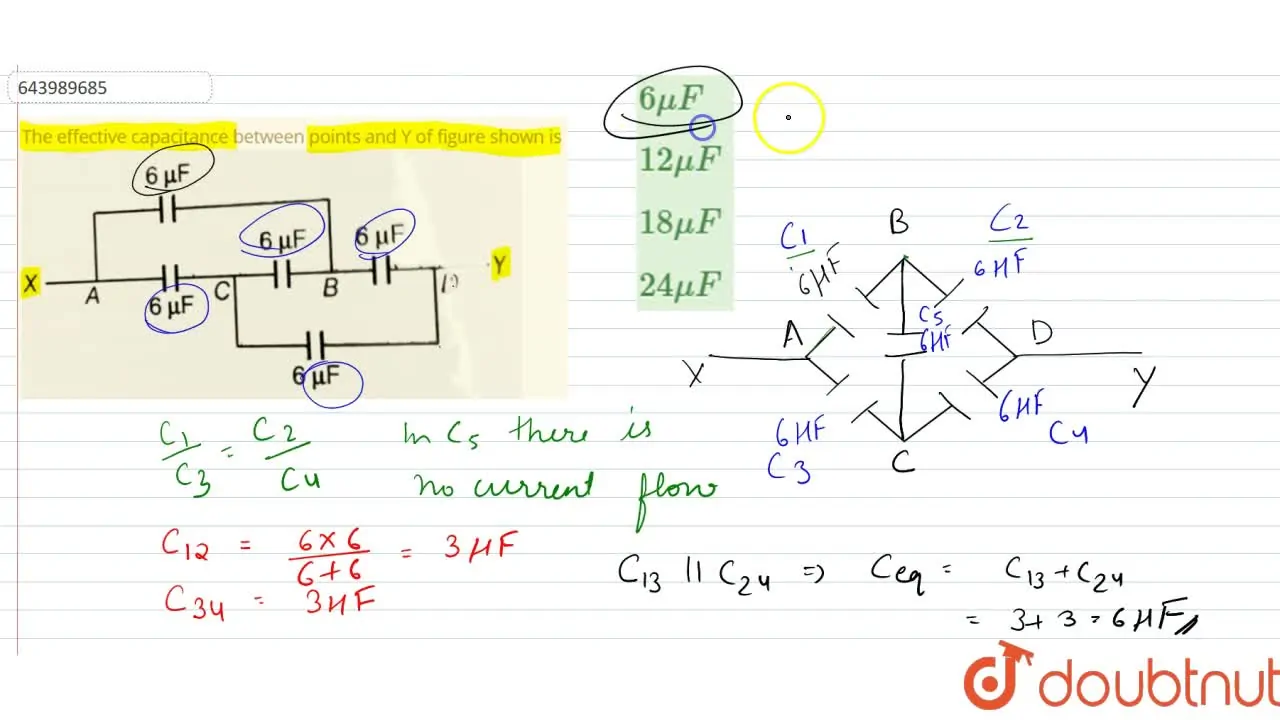 643989685
The effective capacitance between points and Y of figure shown is
6 μF
6 μF
6 μF
X
Y
A
C
B
6 μF
6 μF
6μF
12μF
18μF
24μF
B
C1
6μF
C2
6μF
C5
6μF
A
D
X
Y
6μF
C3
6μF
C4
C
C1/C3 = C2/C4
In C5 there is
no current flow
C12 = 6×6/6+6 = 3μF
C34 = 3μF
C13 || C24 ⇒ Ceq = C13 + C24
= 3+3 = 6μF
doubtnut